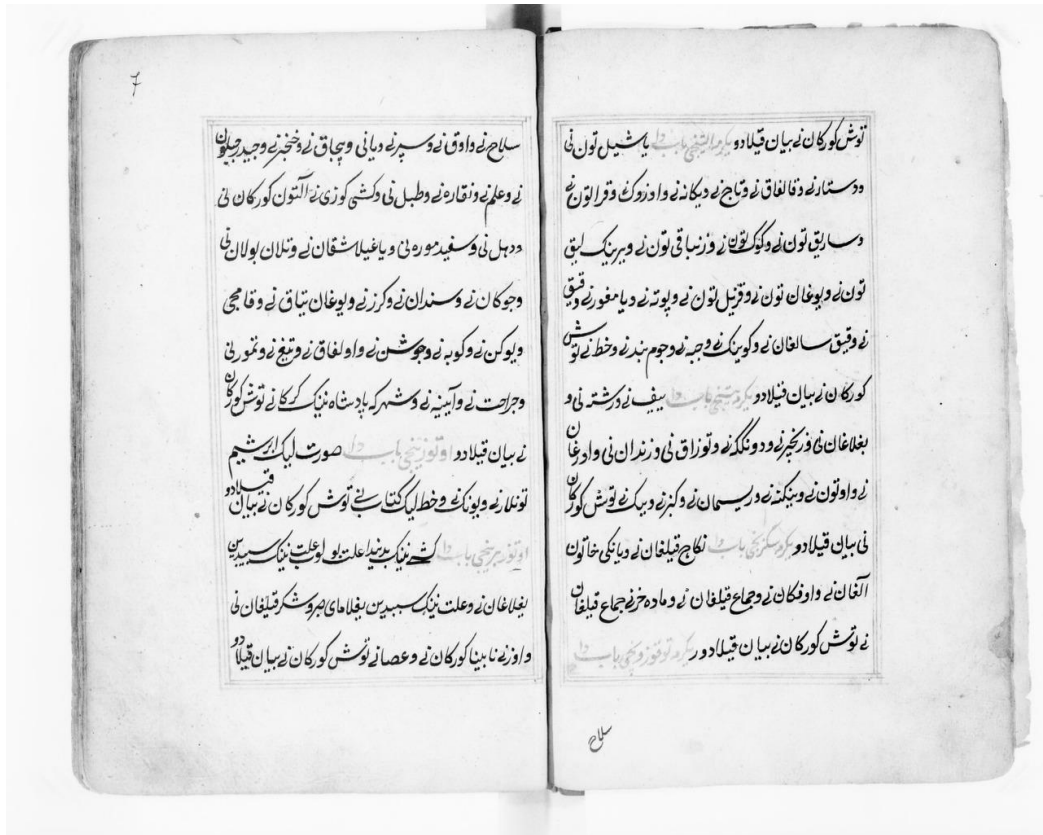 توش کورکان نے بیان قیلادو یکرمه التنجی باب دا یاشیل تون نی
ودستارنے وقالغاق نے وتاج نے ویکانه نے واوزوک نے وقرا تون نے
وساریق تون نے وکوک تون نے وزنباقی تون نے وبیرینک لیق
تون نے ویوغان تون نے وقزیل تون نے وپوته نے ویامغورنے وقیق
نے وقیق سالغان نے وکوینک نے وجبه نے وجوم بندنے وخط نے توش
کورکان نے بیان قیلادو یکرمه یتنجی باب دا سیف نے ورشته نی و
یغلاغان نی وزنجیرنے ودونکگه نے وتوزاق نی وزندان نی واورغان
نے واوتون نے وینکنه نے وریسمان نے وکبزنے ودیک نے توش کورکان
نی بیان قیلادو یکرمه سکزنجی باب دا نکاح قیلغان نے ویانکی خاتون
آلغان نے واوفکان نے وجماع قیلغان نے وماده خرنے جماع قیلغان
نے توش کورکان نے بیان قیلادور یکرمه توقوزونجی باب دا
سلاح
7
سلاح نے واوق نے وسپرنے ویانی وپچاق نے وخنجرنے وجیدرجیلون
نے وعلم نے ونقاره نے وطبل نی وکشی کوزی نے آلتون کورکان نی
ودهل نی وسفیدموره نی ویاغیلاشقان نے وتلان بولان نی
وجوکان نے وسندان نے وکرزنے ویوغان تیاق نے وقامچی
ویوکن نے وکوبه نے وجوشن نے واولغاق نے وتیغ نے وتمورنی
وجراحت نے وآیینه نے وشهرکه پادشاه نینک کرکانے توش کورکان
نے بیان قیلادو اوتوزینجی باب دا صورت لیک ابریشیم
تونلارنے ویونک نے وخط لیک کتاب نے توش کورکان نے بیان قیلادو
اوتوز برینجی باب دا کشے نینک بدنیدا علت بولوب علت نینک سببیدین
یغلاغان نے وعلت نینک سببیدین یغلامای صبروشکر قیلغان نی
واوزنے نابینا کورکان نے وعصانے توش کورکان نے بیان قیلادو